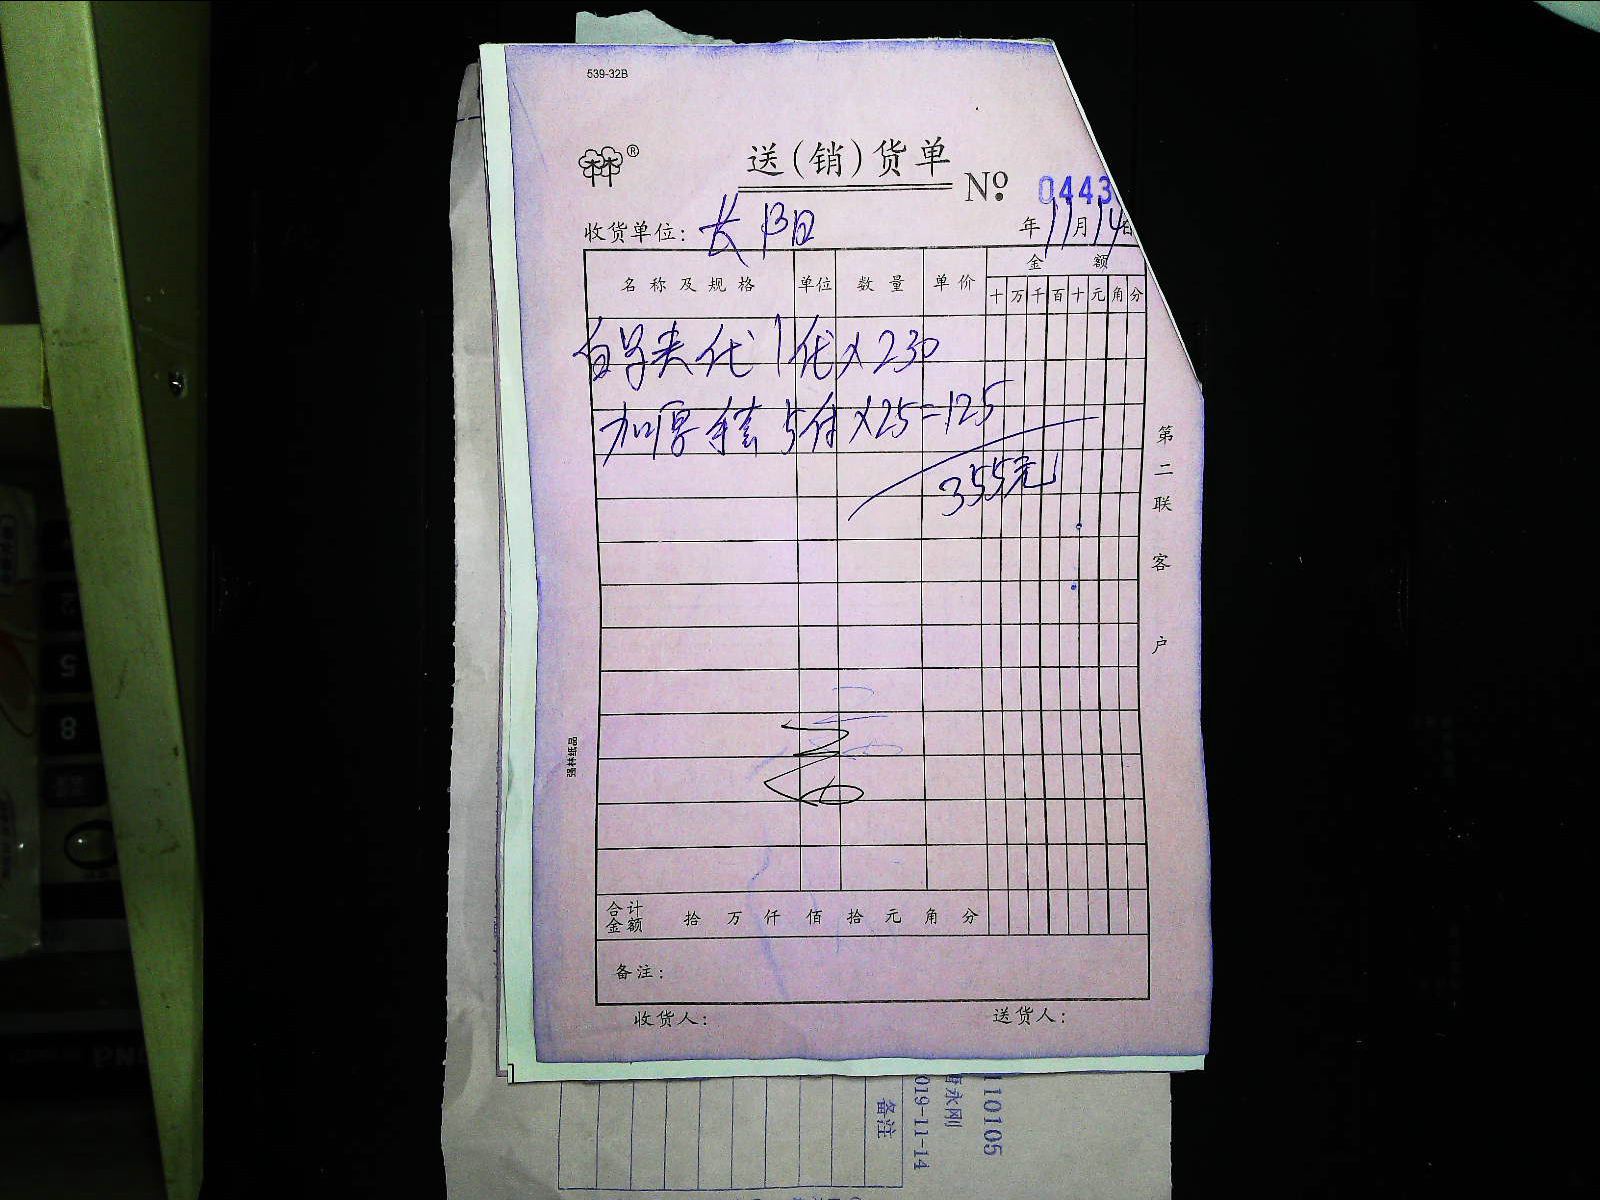 539-32B
林®
送(销)货单
№ 0443
收货单位: 长阳
年11月14日
名称及规格 单位 数量 单价 金额
十 万 千 百 十 元 角 分
1 × 230
加厚手套 5付×25=125
355元
第二联 客户
强林纸品
合计金额 拾 万 仟 佰 拾 元 角 分
备注:
收货人: 送货人:
110105
永刚
019-11-14
备注
5
8